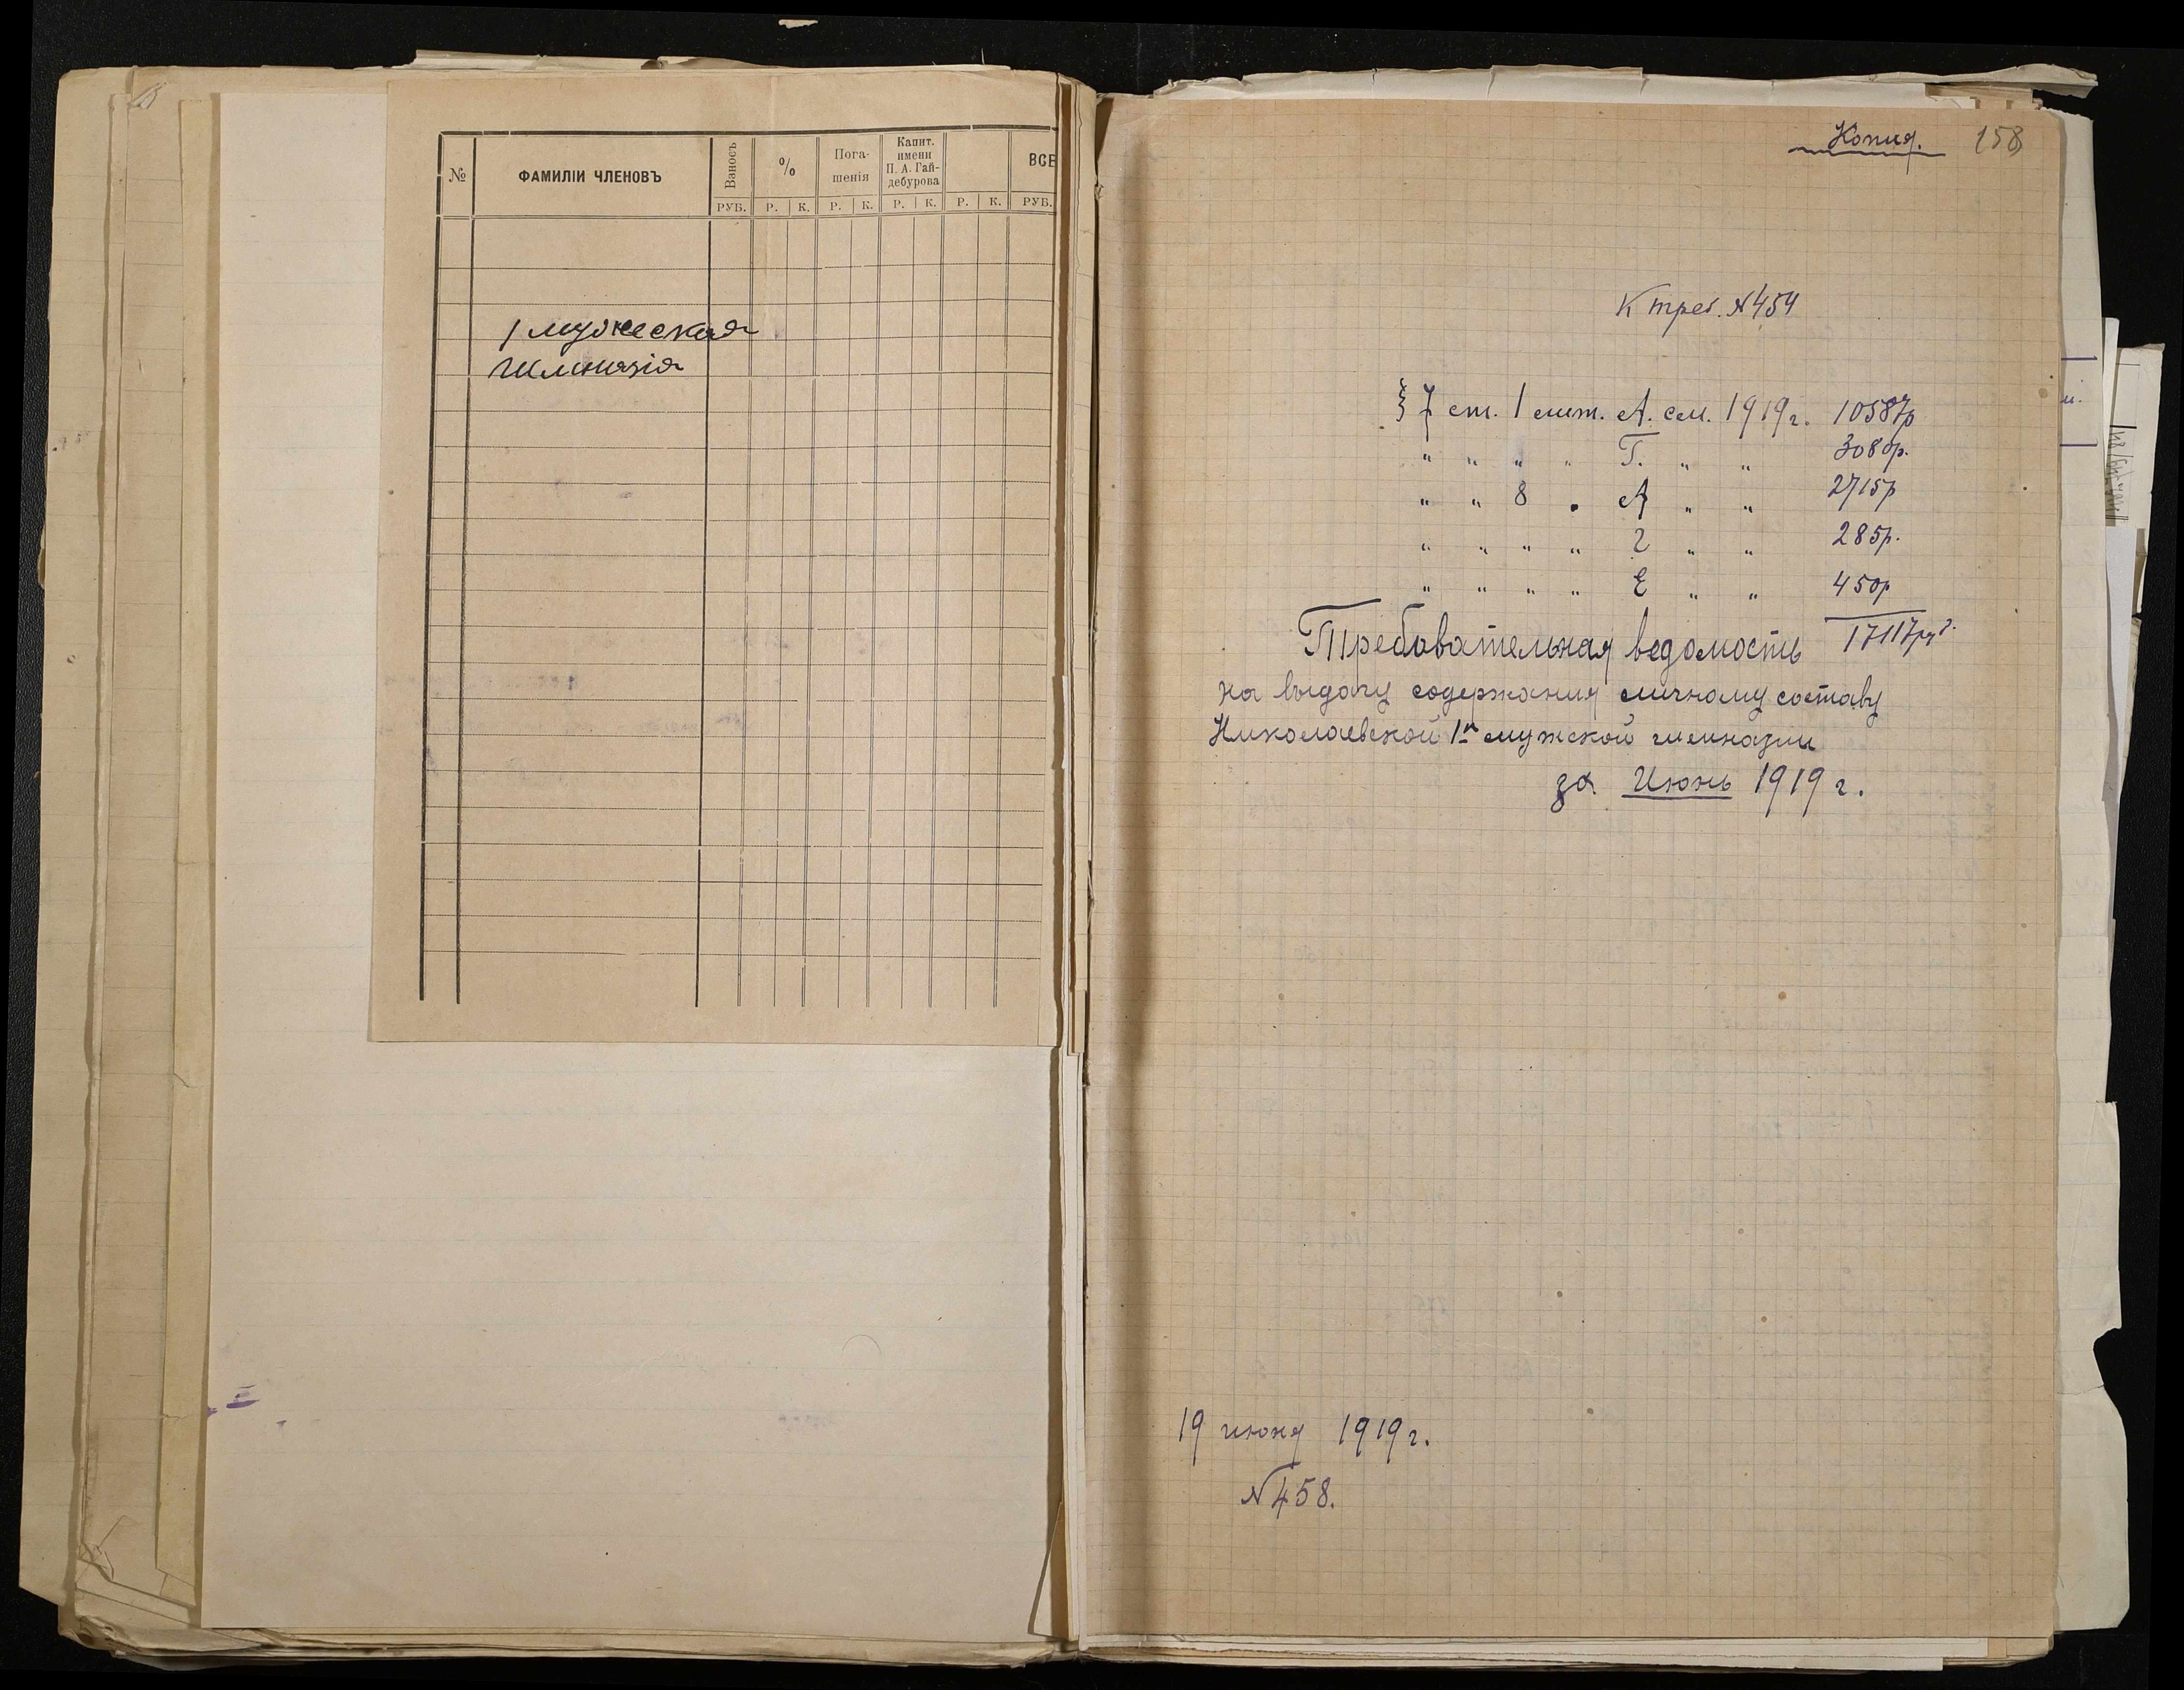 № ФАМИЛІИ ЧЛЕНОВЪ Взносъ % Пога-шенія Капит. имени П. А. Гай-дебурова ВСЕ
РУБ. Р. К. Р. К. Р. К. Р. К. РУБ.
1 мужеская
гимназія
Копия. 158
К треб. №454
§ 7 ст. 1 лит. А. см. 1919 г. 10587р
" " " " Г. " " 3080р.
" " 8 " А " " 2715р
" " " " г " " 285р.
" " " " Е " " 450р
17117р
Требовательная ведомость
на выдачу содержания личному составу
Николаевской 1й мужской гимназии
за Июнь 1919 г.
19 июня 1919 г.
№458.